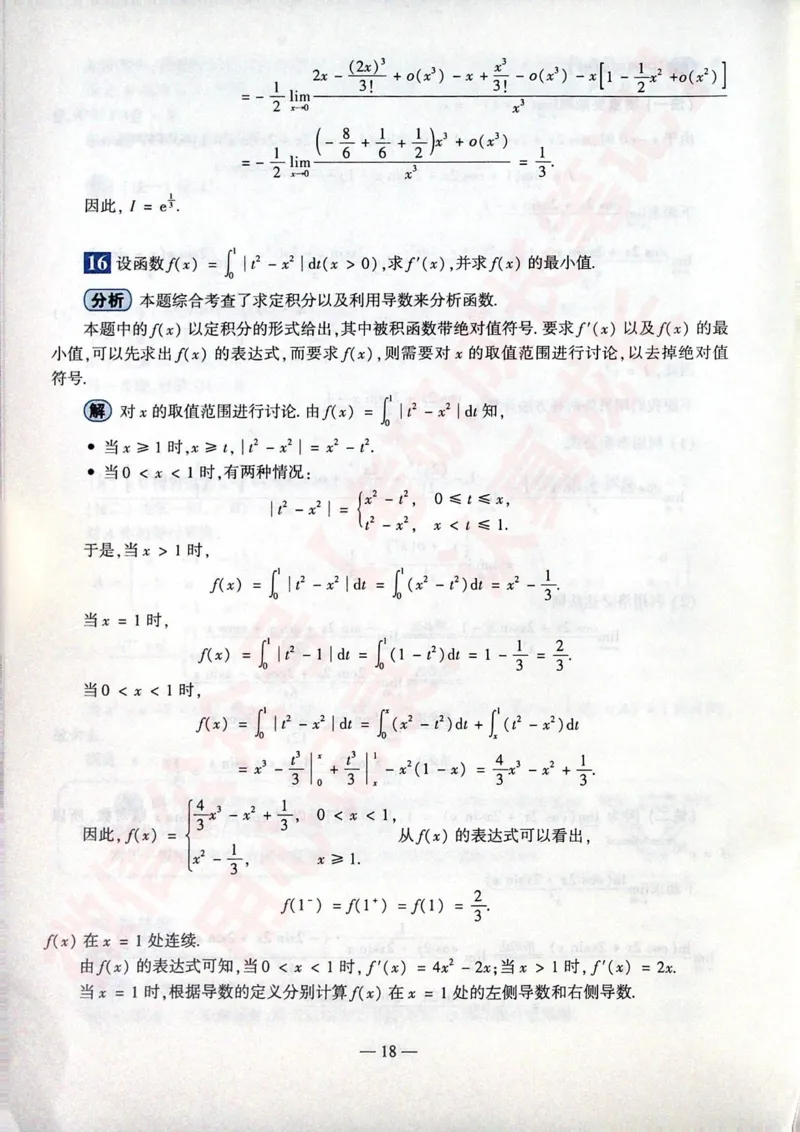 = -\frac{1}{2} \lim_{x→0} \frac{2x - \frac{(2x)^3}{3!} + o(x^3) - x + \frac{x^3}{3!} - o(x^3) - x\left[1 - \frac{1}{2}x^2 + o(x^2)\right]}{x^3}
= -\frac{1}{2} \lim_{x→0} \frac{\left(-\frac{8}{6} + \frac{1}{6} + \frac{1}{2}\right)x^3 + o(x^3)}{x^3} = \frac{1}{3}.
因此, I = e^{\frac{1}{3}}.
16 设函数f(x) = ∫_0^1 |t² - x²|dt(x > 0),求f′(x),并求f(x) 的最小值.
分析 本题综合考查了求定积分以及利用导数来分析函数.
本题中的f(x) 以定积分的形式给出,其中被积函数带绝对值符号. 要求f′(x) 以及f(x) 的最
小值,可以先求出f(x) 的表达式,而要求f(x),则需要对 x 的取值范围进行讨论,以去掉绝对值
符号.
解 对 x 的取值范围进行讨论. 由f(x) = ∫_0^1 |t² - x²|dt 知,
• 当 x ≥ 1 时,x ≥ t, |t² - x²| = x² - t².
• 当0 < x < 1 时,有两种情况:
|t² - x²| = { x² - t², 0 ≤ t ≤ x,
t² - x², x < t ≤ 1.
于是,当 x > 1 时,
f(x) = ∫_0^1 |t² - x²|dt = ∫_0^1 (x² - t²)dt = x² - \frac{1}{3}.
当 x = 1 时,
f(x) = ∫_0^1 |t² - 1|dt = ∫_0^1 (1 - t²)dt = 1 - \frac{1}{3} = \frac{2}{3}.
当0 < x < 1 时,
f(x) = ∫_0^1 |t² - x²|dt = ∫_0^x (x² - t²)dt + ∫_x^1 (t² - x²)dt
= x³ - \frac{t³}{3}|_0^x + \frac{t³}{3}|_x^1 - x²(1 - x) = \frac{4}{3}x³ - x² + \frac{1}{3}.
因此, f(x) = { \frac{4}{3}x³ - x² + \frac{1}{3}, 0 < x < 1, 从f(x) 的表达式可以看出,
x² - \frac{1}{3}, x ≥ 1.
f(1⁻) = f(1⁺) = f(1) = \frac{2}{3}.
f(x) 在 x = 1 处连续.
由f(x) 的表达式可知,当0 < x < 1 时, f′(x) = 4x² - 2x;当 x > 1 时, f′(x) = 2x.
当 x = 1 时,根据导数的定义分别计算f(x) 在 x = 1 处的左侧导数和右侧导数.
— 18 —